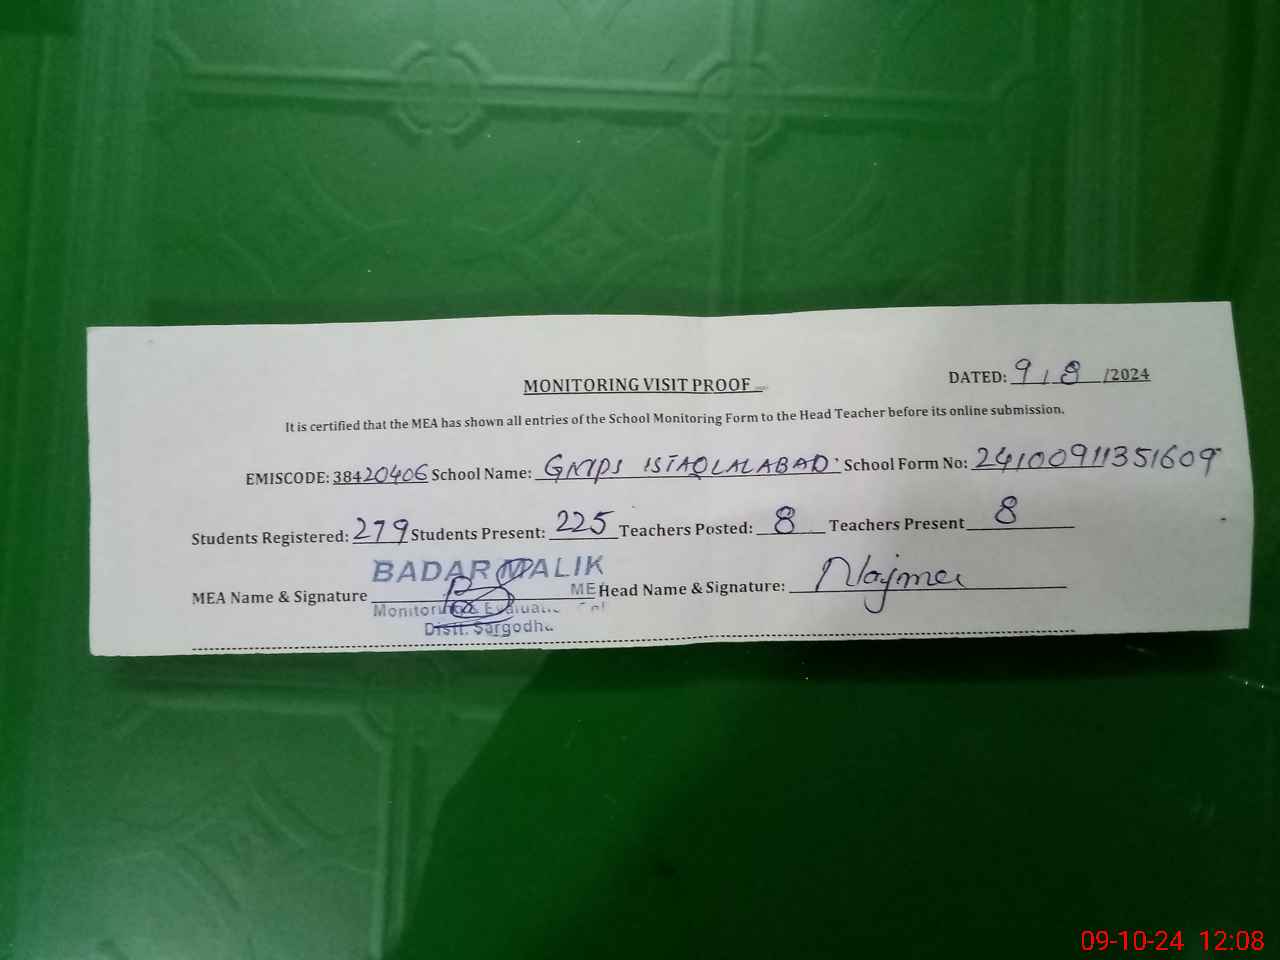 MONITORING VISIT PROOF
DATED: 9/8/2024
It is certified that the MEA has shown all entries of the School Monitoring Form to the Head Teacher before its online submission.
EMISCODE: 38420406 School Name: GMPS ISTAQLALABAD School Form No: 24100911351609
Students Registered: 279 Students Present: 225 Teachers Posted: 8 Teachers Present 8
BADAR MALIK
MEA Name & Signature ME Head Name & Signature: Najma
Monitoring & Evaluatio
Distt. Sargodha
09-10-24 12:08